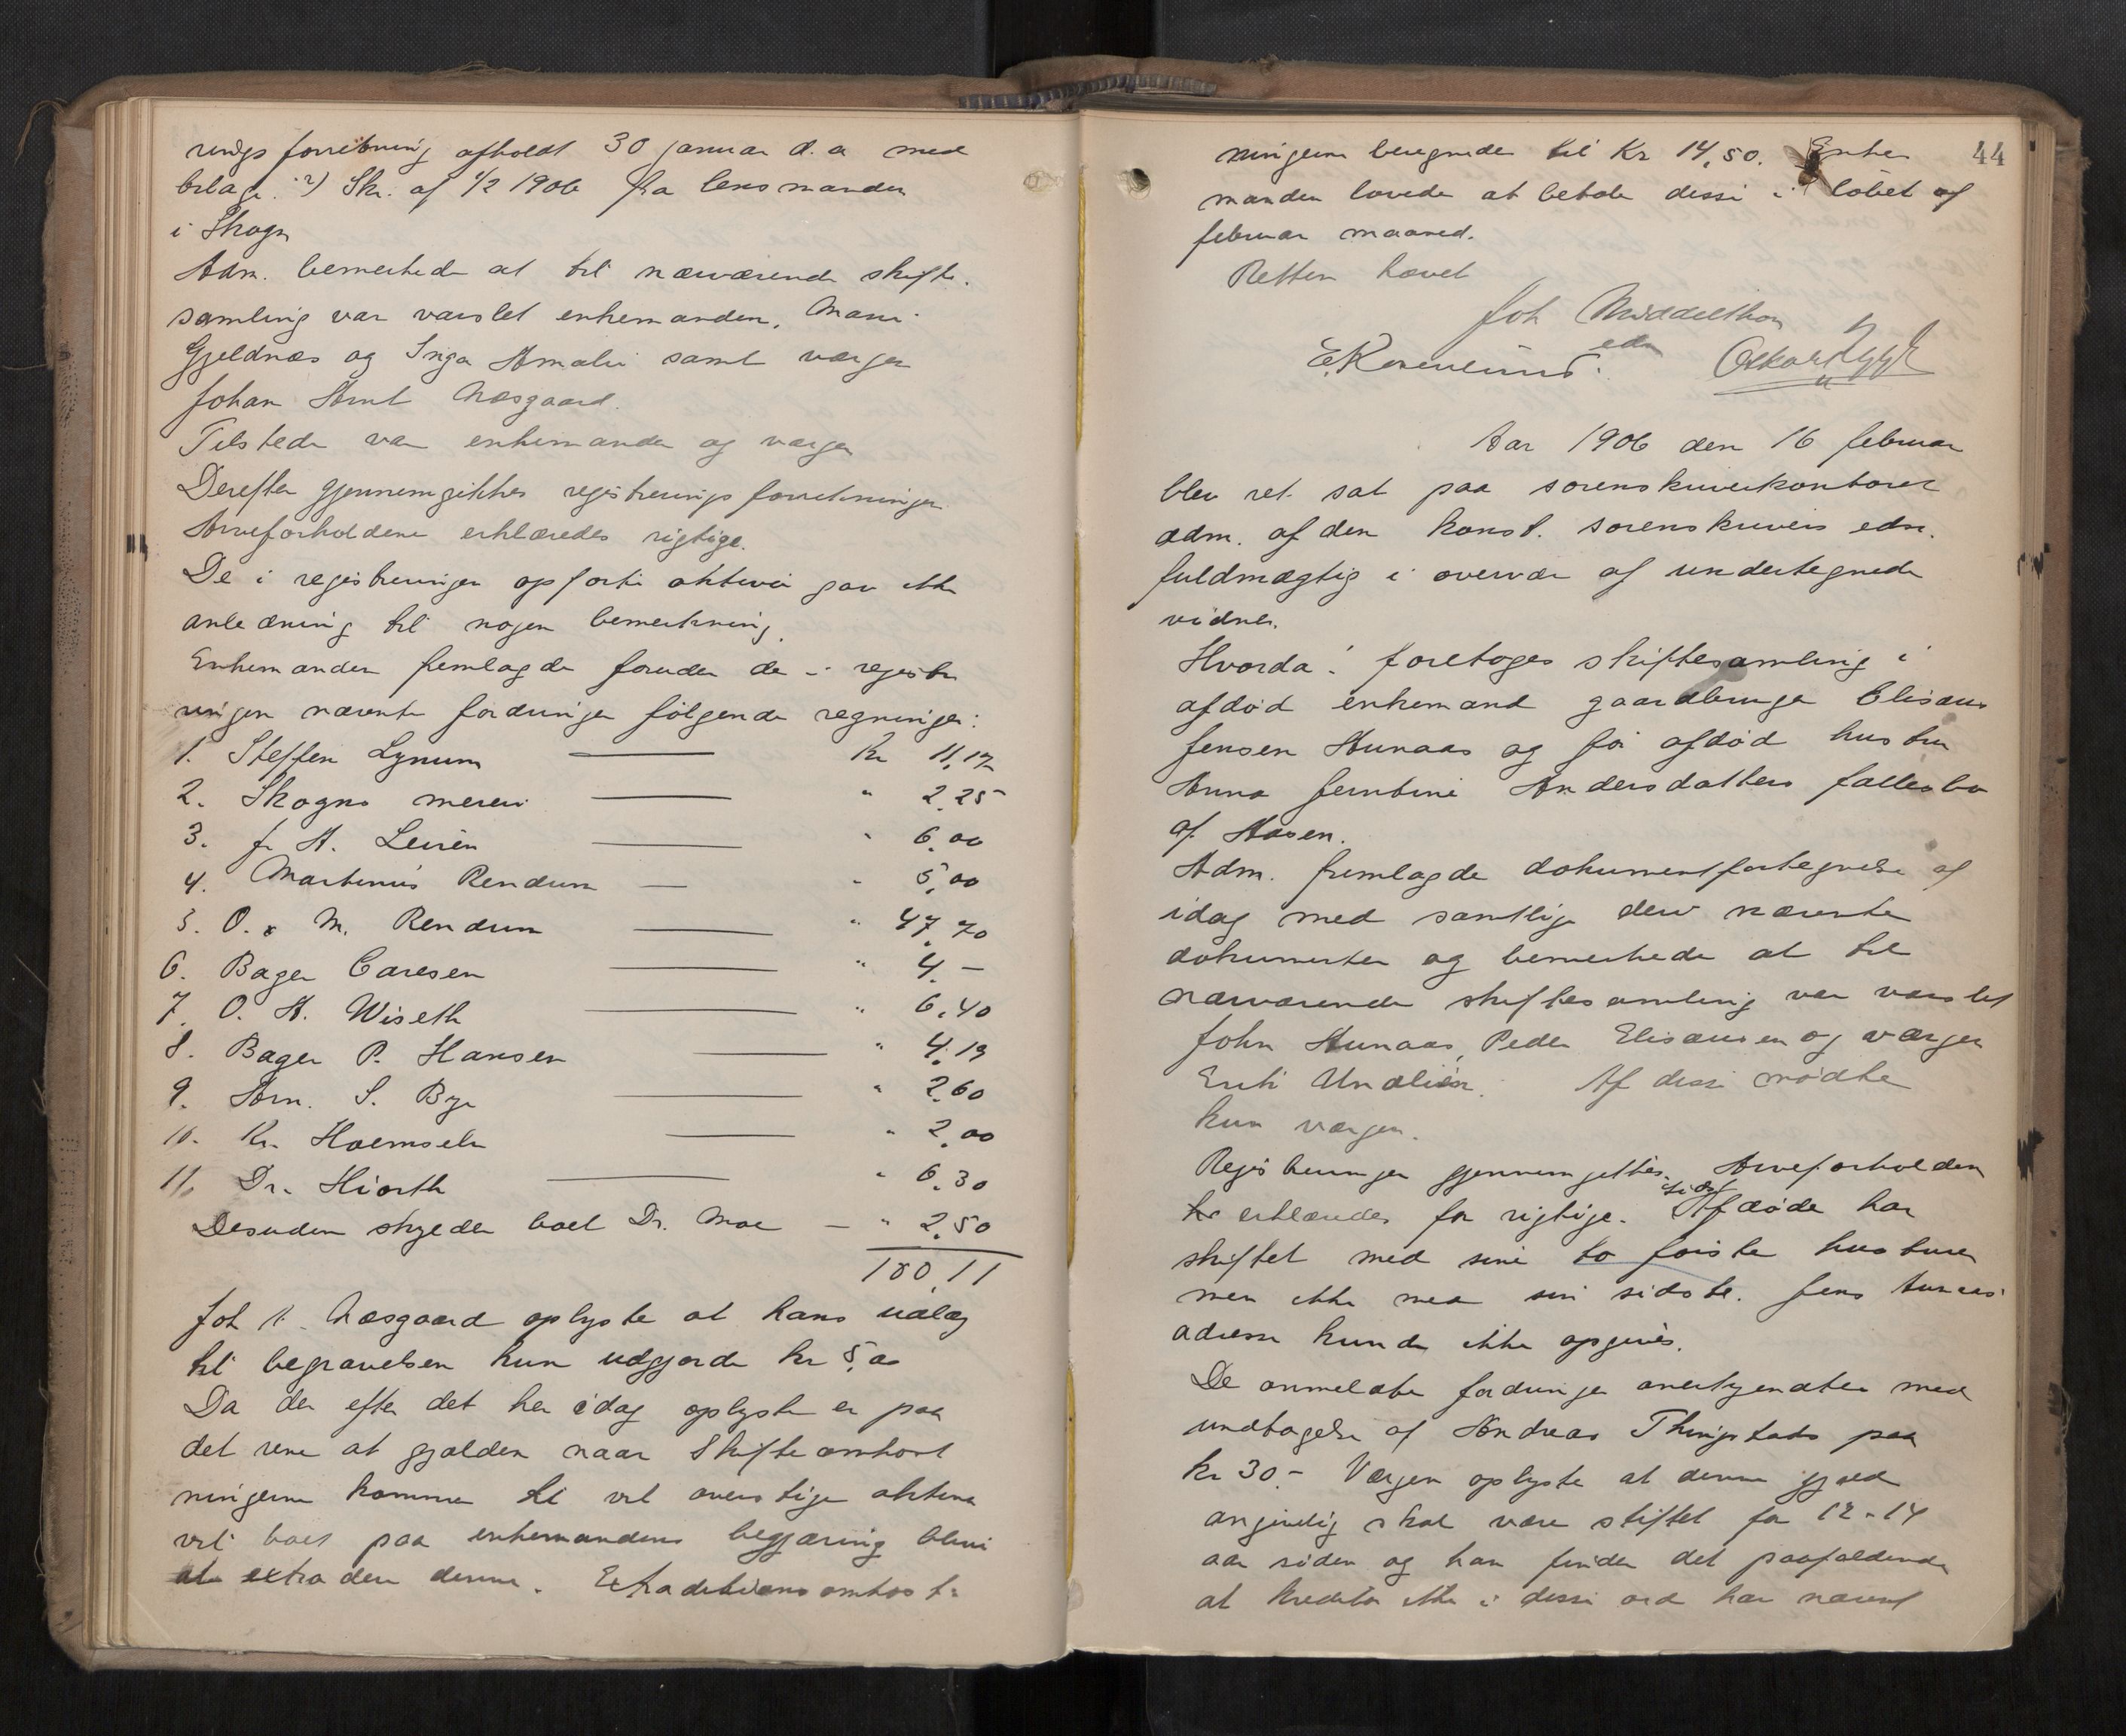 rings forretning afholdt 30 januar d. a med
bilage. 2) Skr. af 1/2 1906 fra lensmanden
i Skogn
Adm. bemerkede at til nærværende skifte-
samling var varslet enkemanden, Marie
Gjeldnæs og Inga Amalie samt værgen
Johan Arnt Næsgaard.
Tilstede var enkemanden og værgen
Derefter gjennemgikkes registreringsforretningen
Arveforholdene erklæredes rigtige.
De i registreringen opførte aktiver gav ikke
anledning til nogen bemerkning.
Enkemanden fremlagde foruden de i registre
ringen nævnte fordringer følgende regninger:
1. Steffen Lynum Kr 11,17
2. Skogns meieri " 2,25
3. J. A. Leirén " 6,00
4. Martinus Rendum " 5,00
5. O. & M. Rendum " 47,70
6. Bager Carlsen " 4,–
7. O. A. Wiseth " 6,40
8. Bager P. Hansen " 4,19
9. Arn. S. Bye " 2,60
10. Kr. " 2,00
11. Dr. Hiorth " 6,30
Desuden skylder boet Dr. Moe — " 2,50
100,11
Joh A. Næsgaard oplyste at hans udlæg
til begravelsen kun udgjorde kr 5,00
Da der efter det her idag oplyste er paa
det rene at gjælden naar skifteomkost
ningerne kommer til vil overstige aktiva
vil boet paa enkemandens begjæring blive
at extradere denne. Extraditionsomkost-
44
ningerne beregnede til Kr 14,50. Enke
manden lovede at betale disse i løbet af
februar maaned.
Retten hævet
Joh Middelthon
edm
E. Rosenlund. Oskar Rygh
Aar 1906 den 16 februar
blev ret sat paa sorenskriverkontoret
adm. af den konst. sorenskrivers edm.
fuldmægtig i overvær af undertegnede
vidner.
Hvorda: foretoges skiftesamling i
afdød enkemand gaardbruger Elisæus
Jensen Aunaas og før afdød hustru
Anna Jerntine Andersdatters fællesbo
af Aasen.
Adm. fremlagde dokumentfortegnelse af
idag med samtlige deri nævnte
dokumenter og bemerkede at til
nærværende skiftesamling var varslet
John Aunaas, Peder Elisæusen og værgen
Erik Undlien. Af disse mødte
kun værgen.
Registreringen gjennemgikkes. Arveforholden
erklæredes for rigtige. sidst Afdøde har
skiftet med sine to første hustruer
men ikke med sin sidste. Jens Aunaas'
adresse kunde ikke opgives.
De anmeldte fordringer anerkjendtes med
undtagelse af Andreas Thingstads paa
kr 30.– Værgen oplyste at denne gjæld
angivelig skal være stiftet for 12-14
aar siden og han finder det paafaldende
at kreditor ikke i disse ord har nævnt